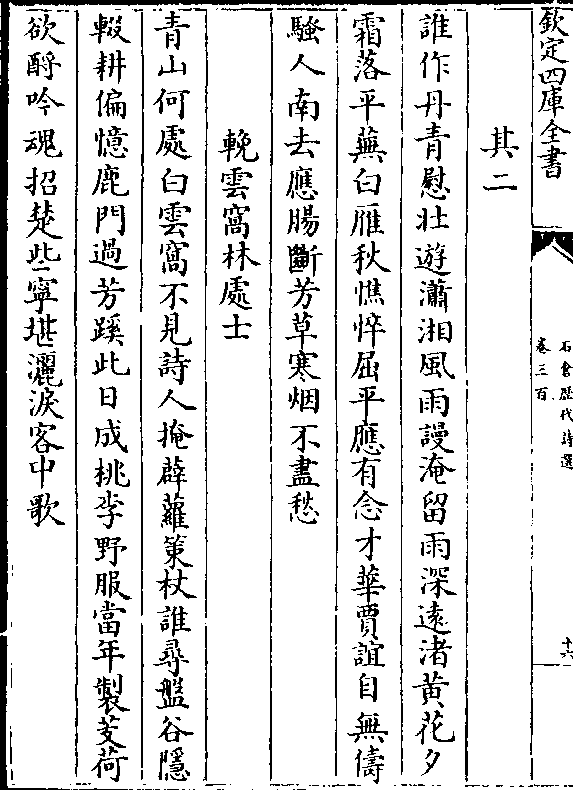 欽定四庫全書
石倉歷代詩選
卷三百
十六
其二
誰作丹青慰壯遊瀟湘風雨謾淹留雨深遠渚黄花夕
霜落平蕪白雁秋憔悴屈平應有念才華賈誼自無儔
騷人南去應腸斷芳草寒烟不盡愁
輓雲窩林處士
青山何處白雲窩不見詩人掩薜蘿策杖誰尋盤谷隱
輟耕偏憶鹿門過芳蹊此日成桃李野服當年製芰荷
欲酹吟魂招楚些寧堪灑淚客中歌